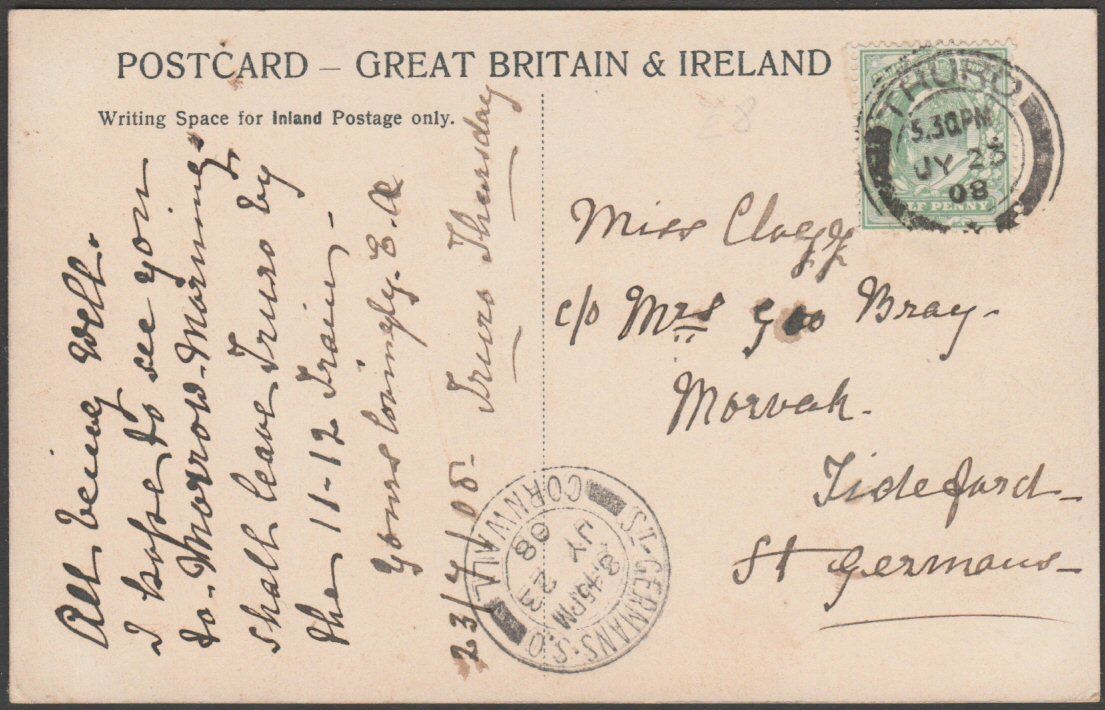 POSTCARD – GREAT BRITAIN & IRELAND
Writing Space for Inland Postage only.
All being well.
I hope to see you
to-Morrow-Morning
shall leave Truro by
the 11-12 Train-
Yours lovingly. E.
23/7/08- Truro Thursday
TRURO
5.30PM
JY 23
08
HALF PENNY
£8
Miss Clogg
c/o Mrs Geo Bray-
Morvah.
Tideford-
St Germans-
ST. GERMANS. S.O
8.45PM
JY 23
08
CORNWALL